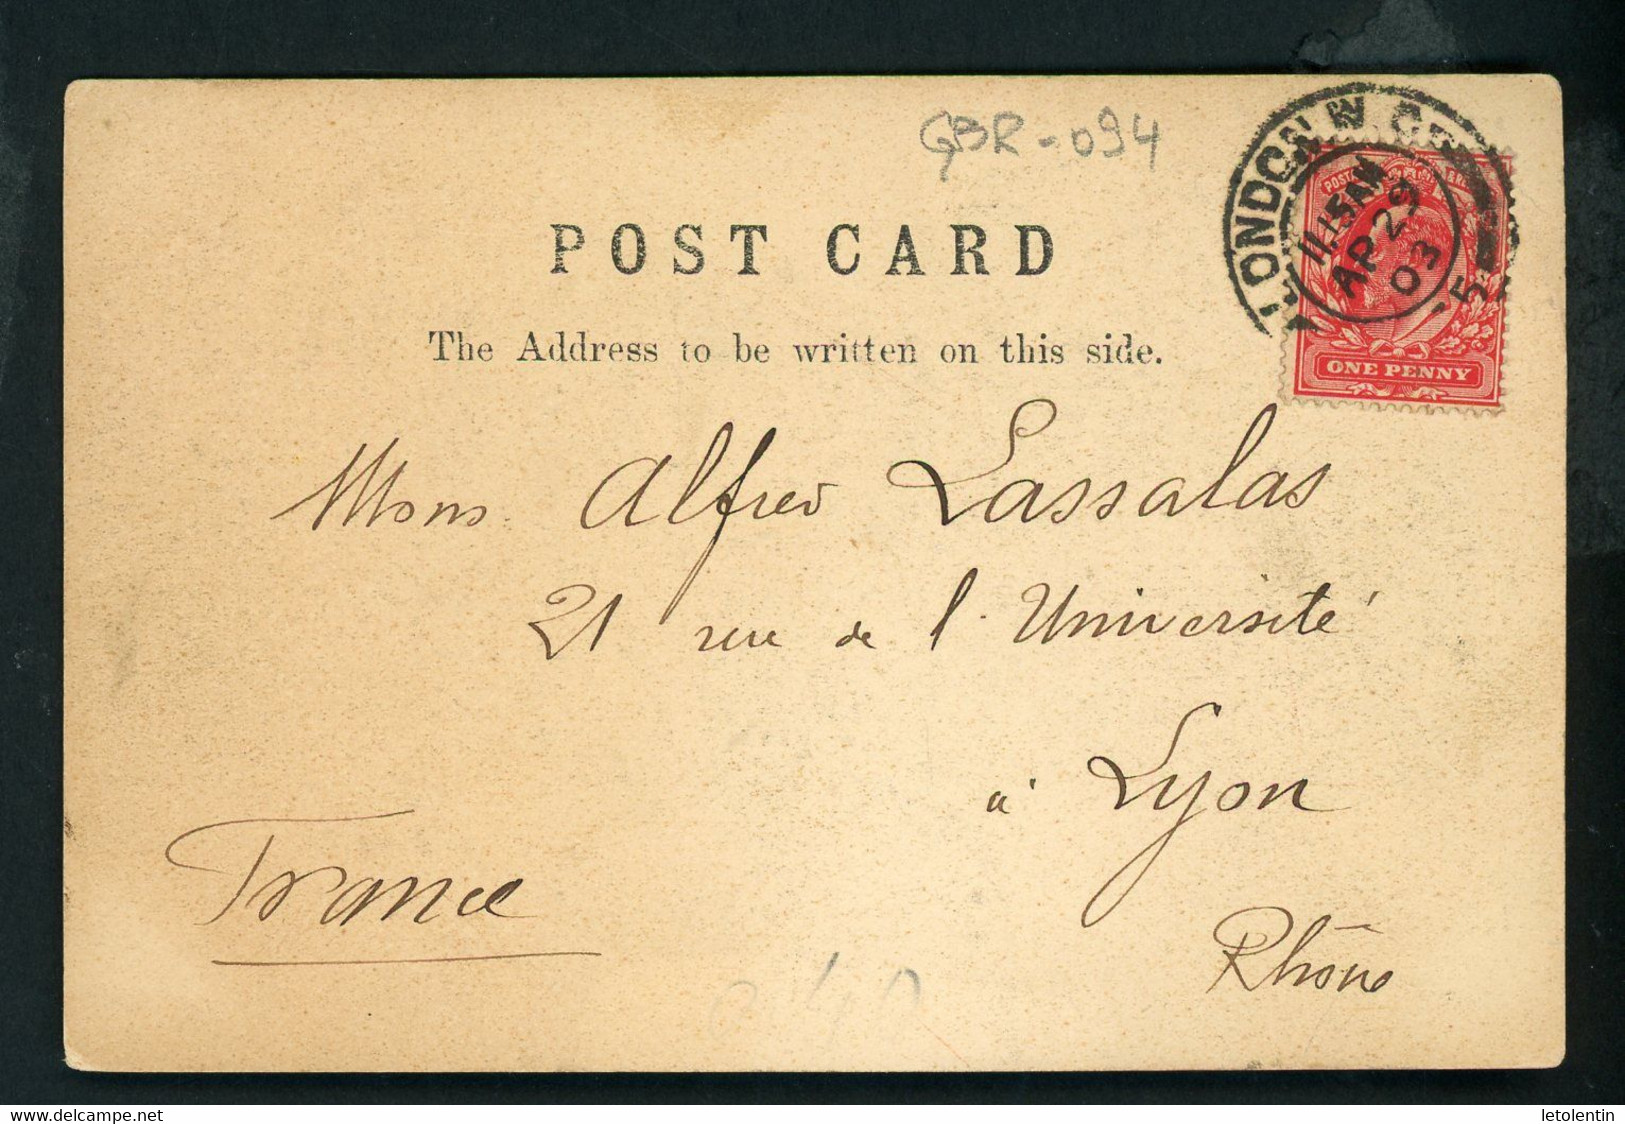 GBR-094
LONDON W.C.
11.15AM
AP 29
03
5
POST
ONE PENNY
POST CARD
The Address to be written on this side.
Mons Alfred Lassalas
21 rue de l'Université
à Lyon
Rhône
France
www.delcampe.net
letolentin